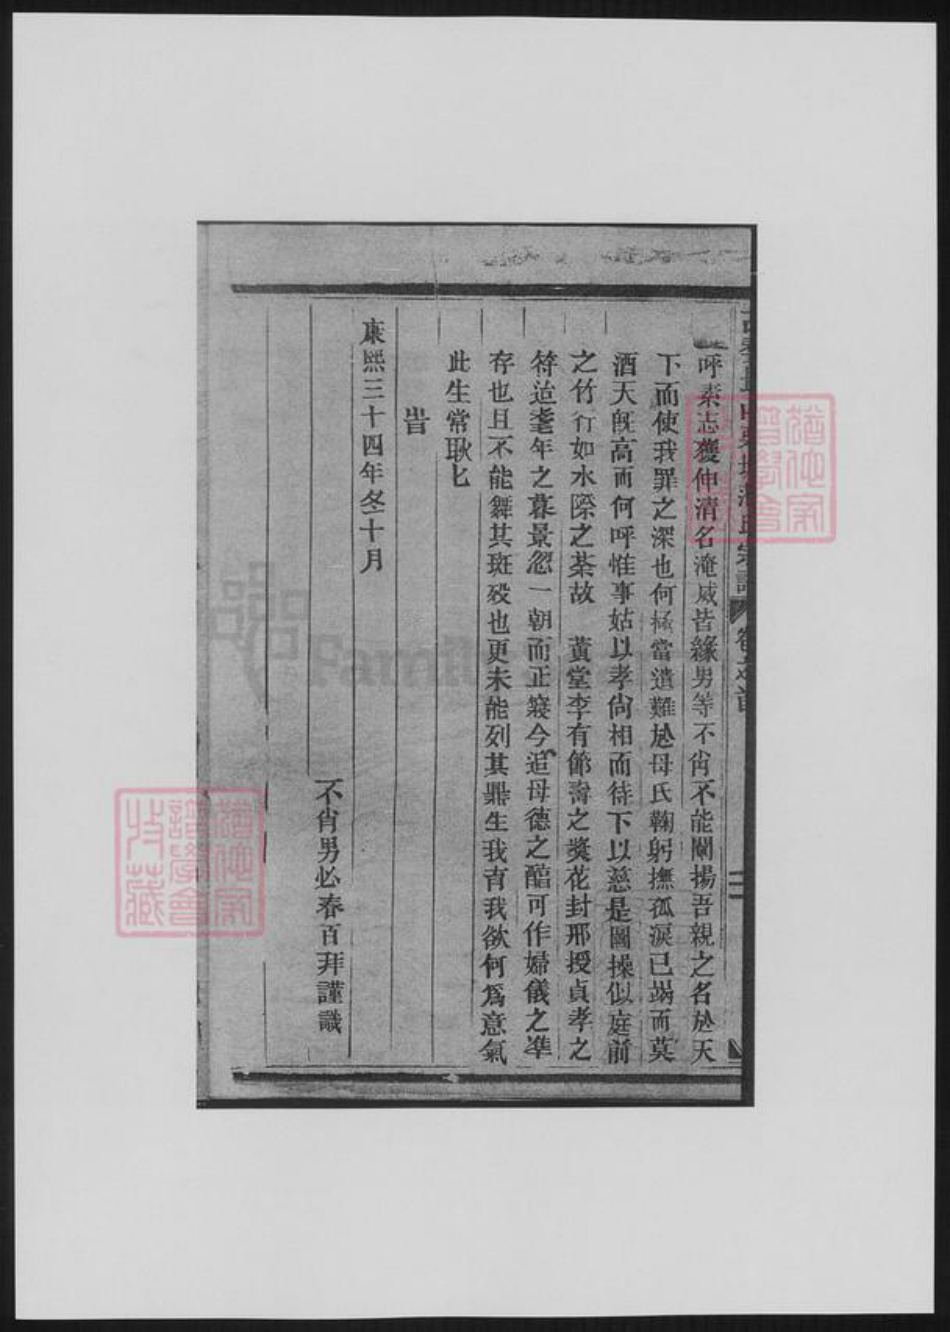 呼素志獲伸清名淹烕皆緣男等不肖不能闡揚吾親之名於天
下而使我罪之深也何極當遣難於母氏鞠躬撫孤淚已竭而莫
酒天旣高而何呼惟事姑以孝尙相而待下以慈是圖操似庭前
之竹行如水際之荼故 黃堂李有節壽之奬花封邢授貞孝之
符迨耄年之暮景忽一朝而正寢今追母德之醕可作婦儀之準
存也且不能舞其斑歿也更未能列其鼎生我育我欲何爲意氣
此生常耿匕
旹
康熙三十四年冬十月
不肖男必春百拜謹識
Famil